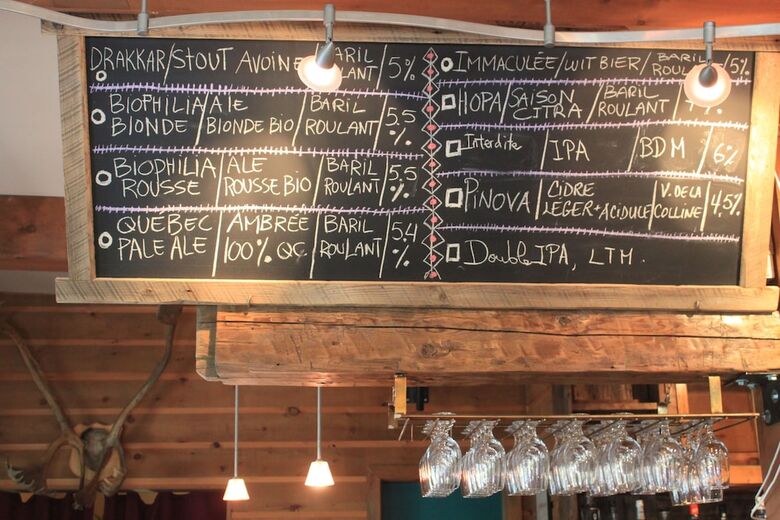 DRAKKAR/STOUT AVOINE BARIL ROULANT 5%
BIOPHILIA BLONDE / ALE BLONDE BIO / BARIL ROULANT 5.5 %
BIOPHILIA ROUSSE / ALE ROUSSE BIO / BARIL ROULANT 5.5 %
QUÉBEC PALE ALE / AMBRÉE 100% QC / BARIL ROULANT 5.4 %
IMMACULÉE/WIT BIER/BARIL 5%
HOPA/SAISON CITRA/BARIL ROULANT
Interdite / IPA / BDM / 6%
PINOVA / CIDRE LÉGER+ACIDULÉ / V. DE LA COLLINE / 4.5%
Double IPA, LTM.